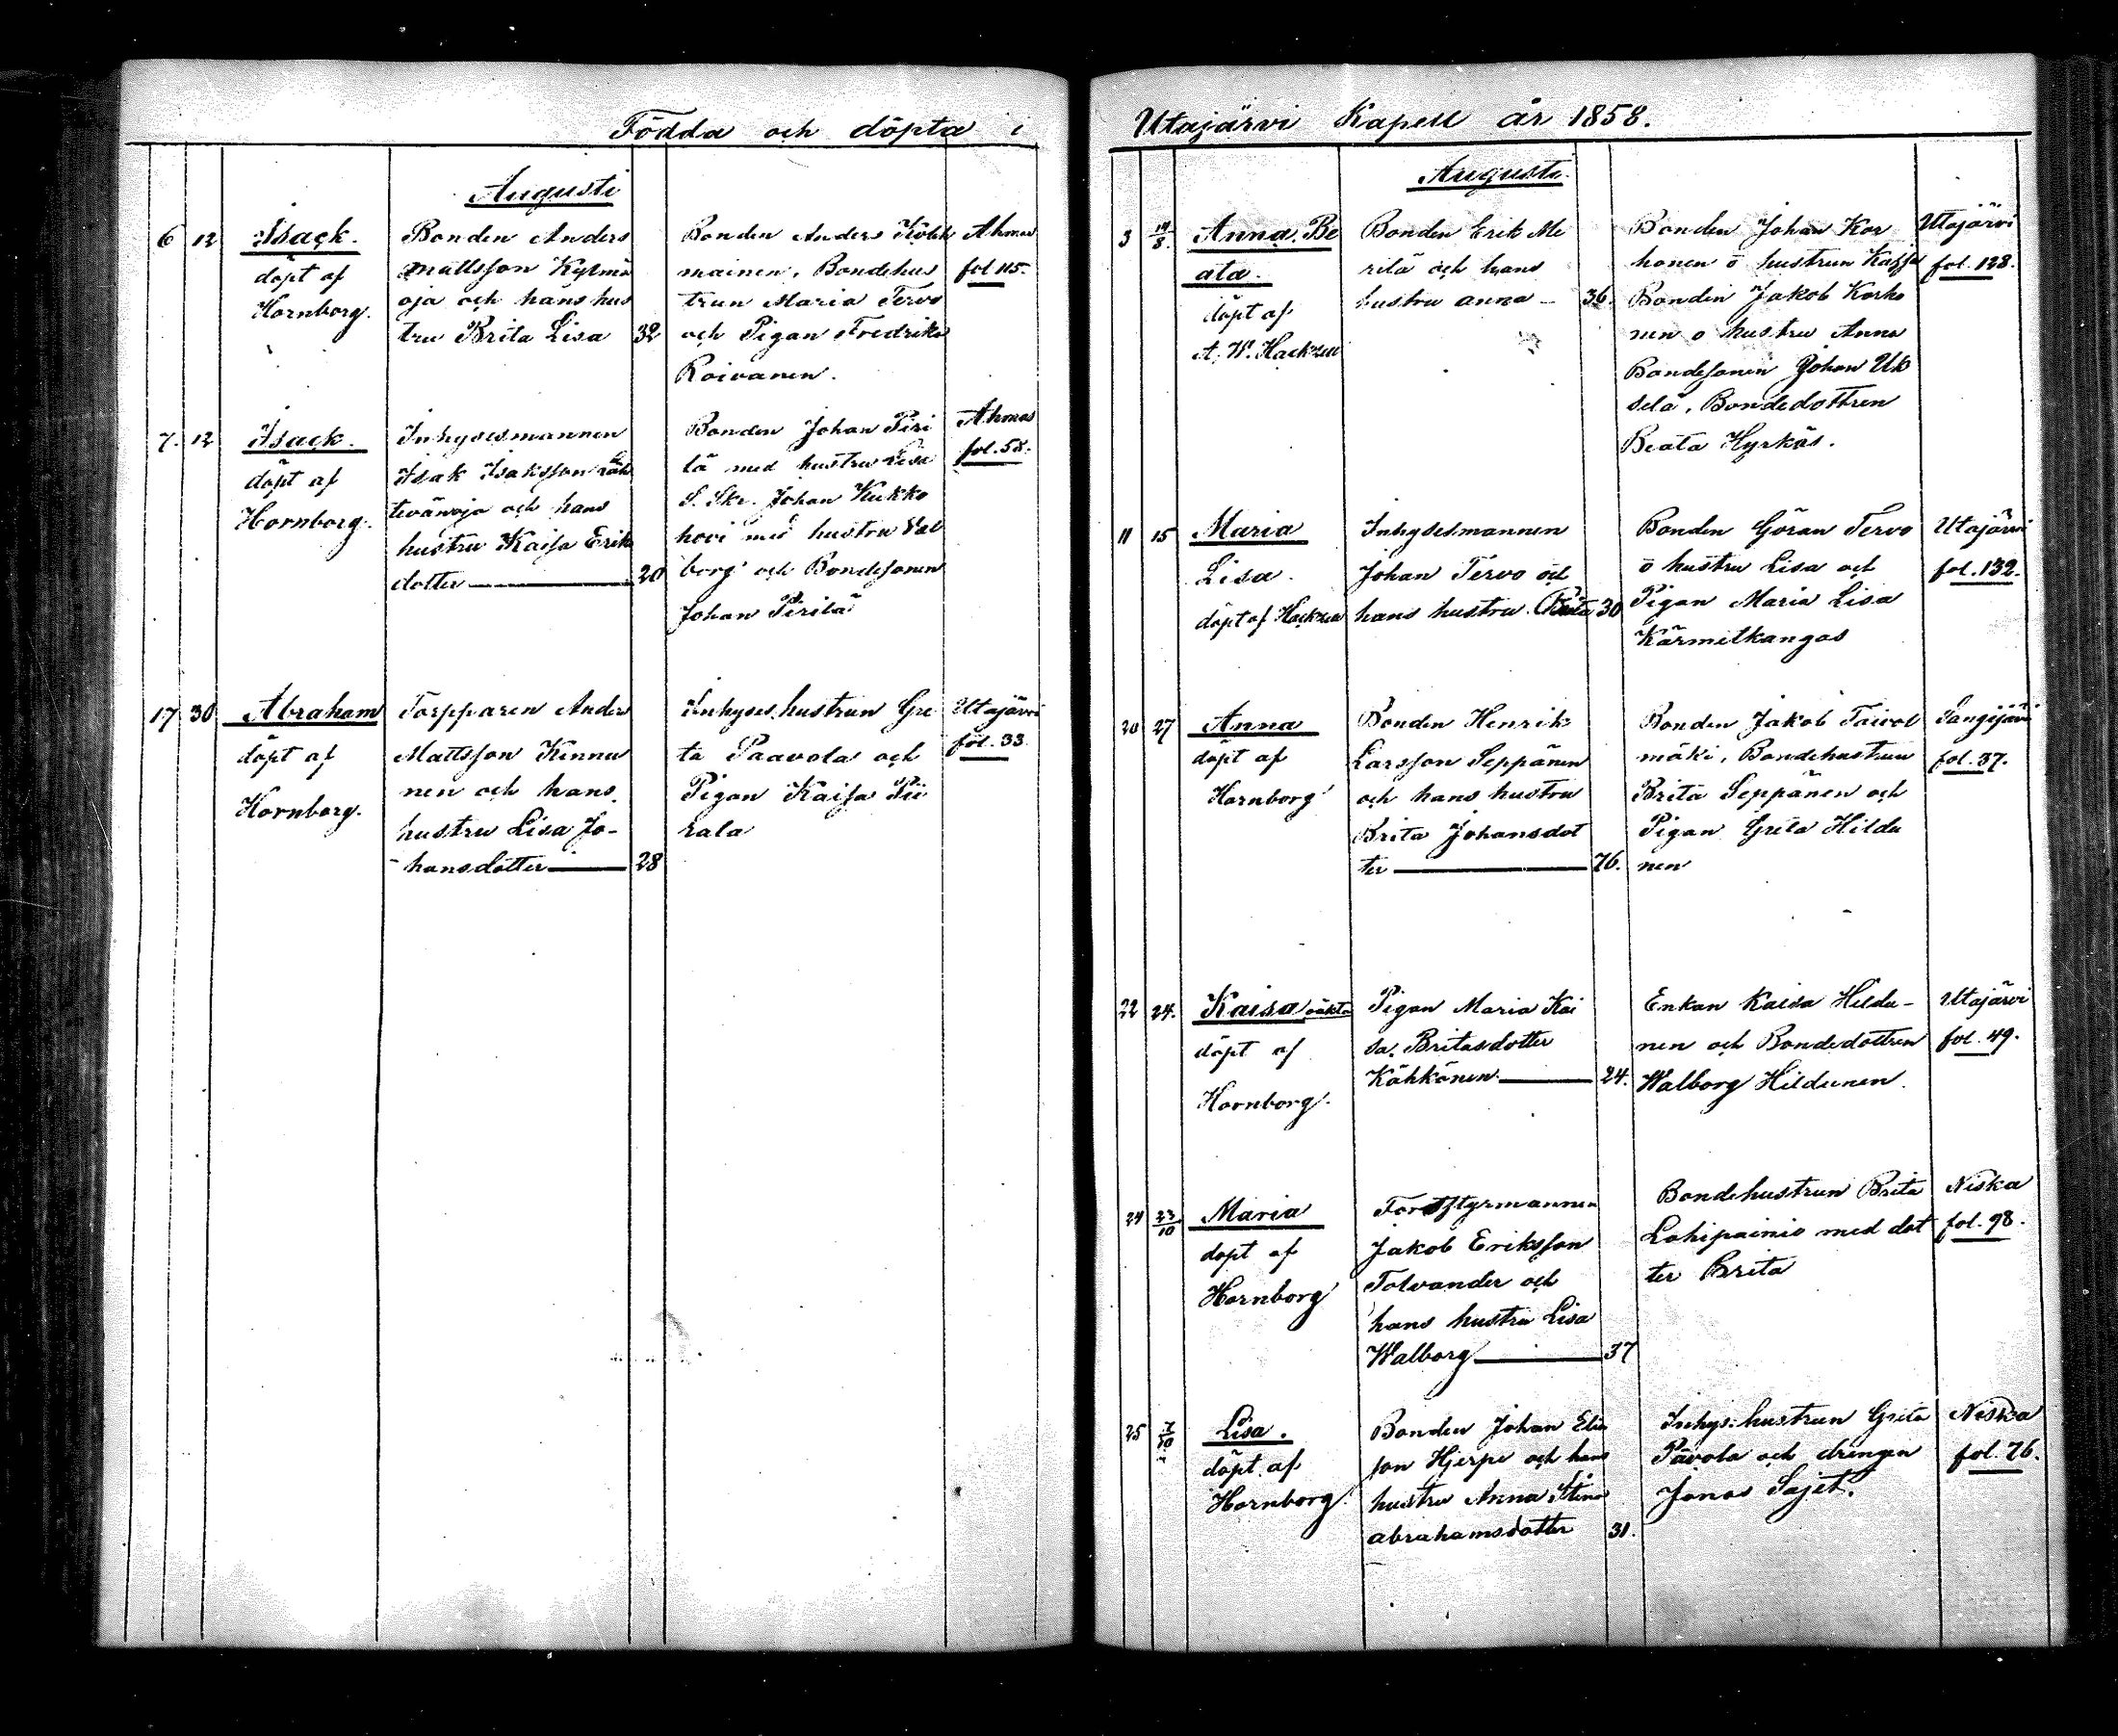 Födda och döpta i
Augusti
6 12 Isack. Bonden Anders Bonden Anders Ahmas
döpt af Mattsson Kylmä mainen, Bondehus fol 115.
Hornborg. oja och hans hus trun Maria Tervo
tru Brita Lisa 32 och Pigan Fredrika
Roivanen.
7. 12 Isack. Inhysesmannen Bonden Johan Piri Ahmas
döpt af Isak Isaksson lä med hustru Lisa fol. 58.
Hornborg. och hans S. Skr. Johan Kukko
hustru Kaisa Eriks hovi med hustru Val
dotter 20 borg och Bondesonen
Johan Pirilä
17 30 Abraham Torpparen Anders Inhyses hustrun Gre Utajärvi
döpt af Mattsson Kinnu ta Paavola och fol. 33.
Hornborg. nen och hans Pigan Kaisa Pii
hustru Lisa Jo- rala
hansdotter 28
Utajärvi Kapell år 1858.
Augusti.
3 14/8. Anna Be Bonden Erik Me Bonden Johan Kor Utajärvi
ata. rilä och hans honen o hustrun Kajsa fol. 128.
döpt af hustru Anna 36. Bonden Jakob Korho
A. W. Hackzell nen o hustru Anna
Bondesonen Johan Uk
selä, Bondedottren
Beata Hyrkäs.
11 15 Maria Inhysesmannen Bonden Göran Tervo Utajärvi
Lisa. Johan Tervo och o hustru Lisa och fol. 132.
döpt af Hackzell hans hustru 30 Pigan Maria Lisa
Kärmetkangas
20 27 Anna Bonden Henrik Bonden Jakob Taival Sangijärvi
döpt af Larsson Seppänen mäki, Bondehustrun fol. 37.
Hornborg och hans hustru Brita Seppänen och
Brita Johansdot Pigan Greta Hildu
ter 26. nen
22 24. Kaisa oäkta Pigan Maria Kai Enkan Kaisa Hildu- Utajärvi
döpt af sa Britasdotter nen och Bondedottren fol. 49.
Hornborg. Kähkönen 24. Walborg Hildunen.
24 23/10 Maria Forsstyrmannen Bondehustrun Brita Niska
döpt af Jakob Eriksson Lohipainio med dot fol. 98.
Hornborg Tolvander och ter Brita
hans hustru Lisa
Walborg 37
25 7/10 Lisa. Bonden Johan Elia Inhys: hustrun Greta Niska
döpt af son Hjerpe och hans Pavola och drengen fol. 76.
Hornborg. hustru Anna Stina Jonas Sajet.
abrahamsdotter 31.